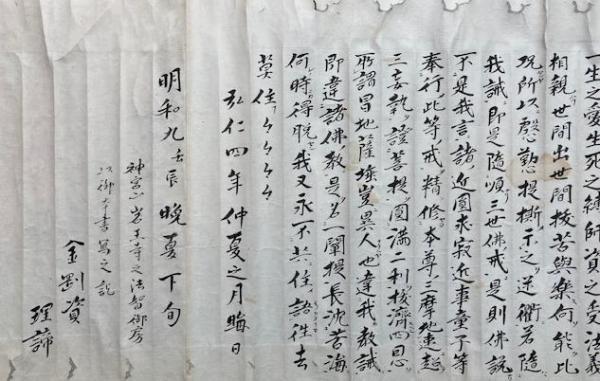 一生之愛生死之練師資之愛法義
相親世間出世間拔苦與樂何能比
况所以慇懃提撕示之迷衢若隨
我誡即是隨順三世佛戒是則佛說
不是我言諸近圓求寂近事童子等
奉行此等戒精修本尊三摩地速超
三妄執證菩提圓滿二利拔濟四恩
所謂冒地薩埵豈異人也違我教誡
即違諸佛教是名一闡提長沈苦海
何時得脫我又永不共住語往去
莫住々々々々
弘仁四年仲夏之月晦日
明和九壬辰晚夏下旬
神宮山岩王寺之法智御房
以御本書写之訖
金剛資
理諦